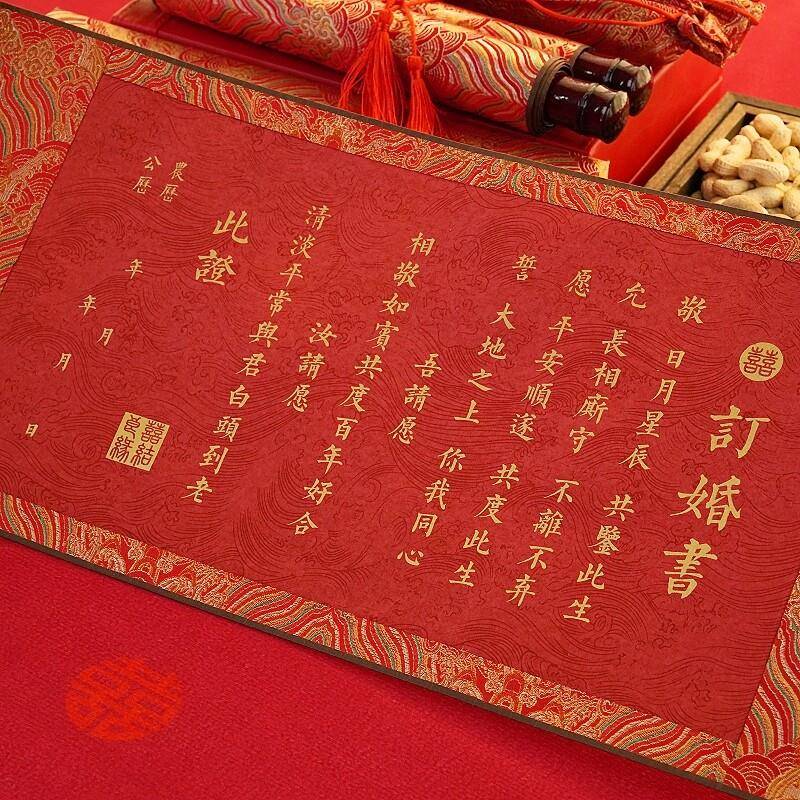 囍
訂婚書
敬 日月星辰 共鑒此生
允 長相廝守 不離不弃
愿 平安順遂 共度此生
誓 大地之上 你我同心
吾請愿
相敬如賓共度百年好合
汝請愿
清淡平常與君白頭到老
此證
囍結良緣
農曆 年 月
公曆 年 月 日